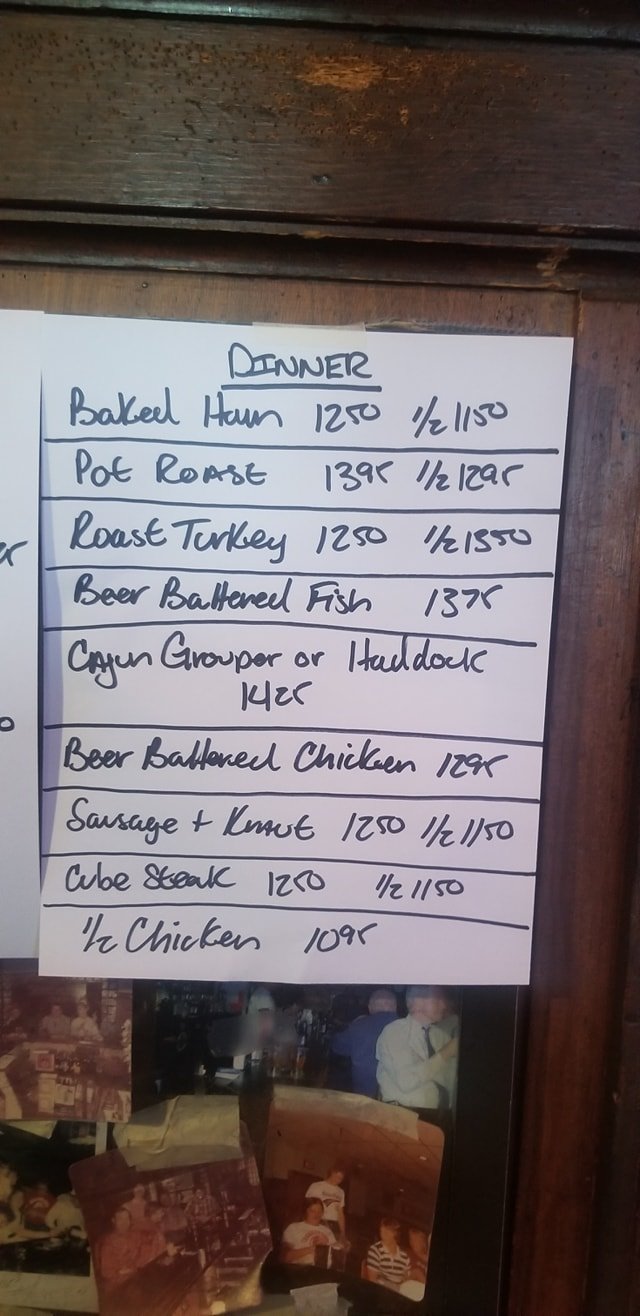 DINNER
Baked Ham 1250 1/2 1150
Pot ROAST 1395 1/2 1295
Roast Turkey 1250 1/2 1350
Beer Battered Fish 1375
Cajun Grouper or Haddock
1425
Beer Battered Chicken 1295
Sausage + Kraut 1250 1/2 1150
Cube Steak 1250 1/2 1150
1/2 Chicken 1095